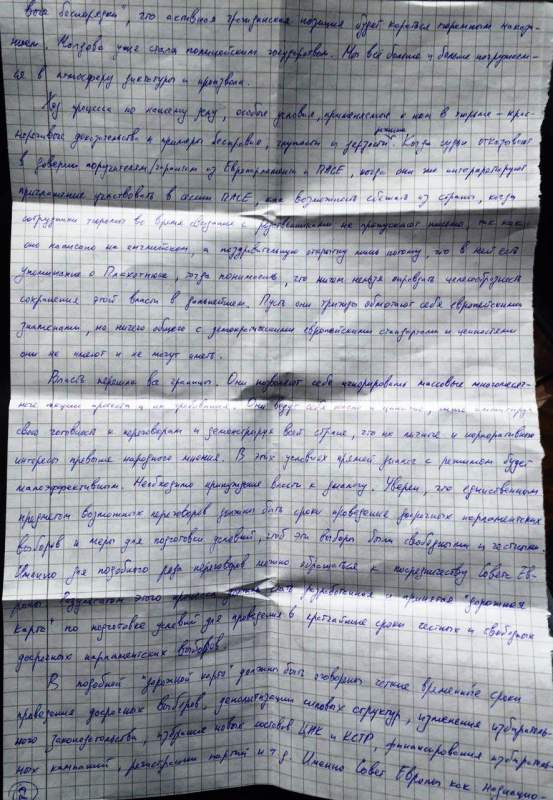 вые беспорядки", что активная гражданская позиция будет караться тюремным наказа-
нием. Молдова уже стала полицейским государством. Мы всё больше и больше погружаем-
ся в атмосферу диктатуры и произвола.
Ход процесса по нашему делу, особые условия, применяемые к нам в тюрьме – крас-
норечивые доказательства и примеры бесправия, глупости и дерзости режима. Когда судьи отказывают
в доверии поручителям/гарантам из Европарламента и ПАСЕ, когда они же интерпретируют
приглашение участвовать в сессии ПАСЕ, как возможность сбежать из страны, когда
сотрудники тюрьмы во время свидания с родственниками не пропускают письмо, так как
оно написано на английском, а поздравительную открытку лишь потому, что в ней есть
упоминание о Плахотнюке, тогда понимаешь, что ничем нельзя оправдать целесообразность
сохранения этой власти в дальнейшем. Пусть они трижды обмотают себя европейскими
знамёнами, но ничего общего с демократическими европейскими стандартами и ценностями
они не имеют и не могут иметь.
Власть перешла все границы. Они позволяют себе игнорирование массовые многомесяч-
ные акции протеста и их требования. Они ведут себя цинично,
свою готовность к переговорам и демонстрируя всей стране, что их личные и корпоративные
интересы превыше народного мнения. В этих условиях прямой диалог с режимом будет
малоэффективным. Необходимо принуждение власти к диалогу. Уверен, что единственным
предметом возможных переговоров должны быть сроки проведения досрочных парламентских
выборов и меры для подготовки условий, чтоб эти выборы были свободными и честными.
Именно для подобного рода переговоров нужно обращаться к посредничеству Совета Ев-
ропы. Результатом этого процесса должна быть разработанная и принятая "дорожная
карта" по подготовке условий для проведения в кратчайшие сроки честных и свободных
досрочных парламентских выборов.
В подобной "дорожной карте" должны быть оговорены чёткие временные сроки
проведения досрочных выборов, деполитизации силовых структур, изменения избиратель-
ного законодательства, избрание новых составов ЦИК и КСТР, финансирования избиратель-
ных кампаний, регистрации партий и т.д. Именно Совет Европы как
2